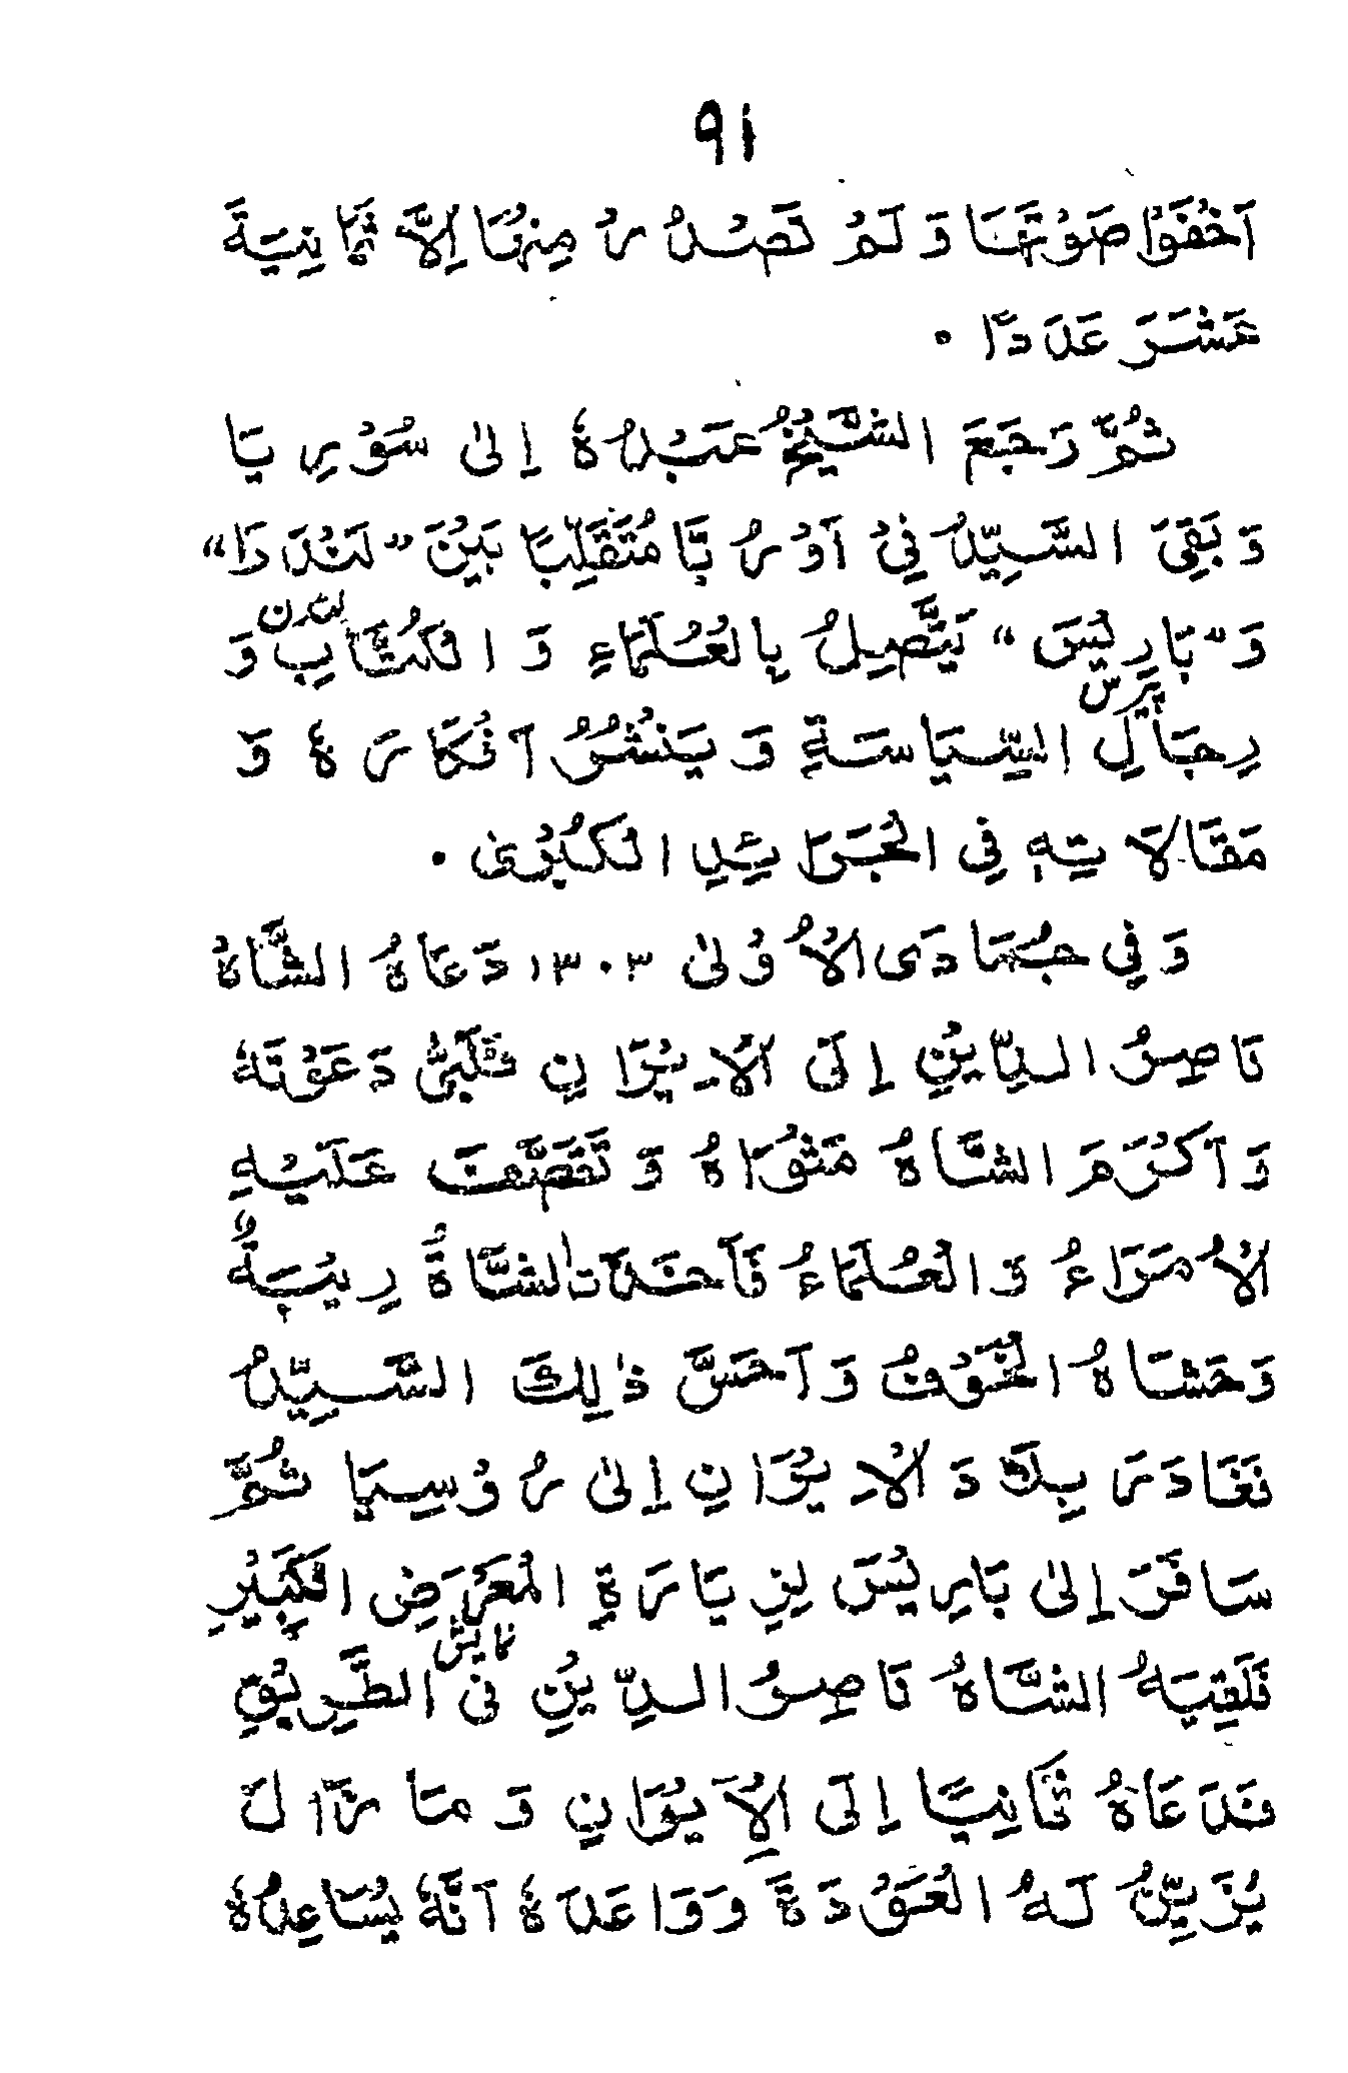 ٩١
اَخْفَوْا صَوْتَهَا وَ لَمْ تَصْدُرْ مِنْهَا اِلَّا ثَمَانِيَةَ
عَشَرَ عَدَدًا ۰
ثُمَّ رَجَعَ الشَّيْخُ عَبْدُهٗ اِلىٰ سُوْرِيَا
وَ بَقِىَ السَّيِّدُ فِىْ اَوْرُبَّا مُتَقَلِّبًا بَيْنَ "لَنْدَرَا"
لندن
وَ "بَارِيْسَ" يَتَّصِلُ بِالْعُلَمَاءِ وَ الْكُتَّابِ وَ
پيرس
رِجَالِ السِّيَاسَةِ وَ يَنْشُرُ اَفْكَارَهٗ وَ
مَقَالَاتِهٖ فِى الْجَرَائِدِ الْكُبْرىٰ ۰
وَ فِى جُمَادَى الْاُوْلىٰ ١٣٠٣ دَعَاهُ الشَّاهُ
نَاصِرُ الدِّيْنِ اِلَى الْاِيْرَانِ فَلَبّٰى دَعْوَتَهٗ
وَ اَكْرَمَ الشَّاهُ مَثْوَاهُ وَ تَقَصَّفَ عَلَيْهِ
الْاُمَرَاءُ وَ الْعُلَمَاءُ فَاَخَذَتِ الشَّاهَ رِيْبَةٌ
وَ خَشَاهُ الْخَوْفُ وَ اَحَسَّ ذٰلِكَ السَّيِّدُ
فَغَادَرَ بِلَادَ الْاِيْرَانِ اِلىٰ رُوْسِيَا ثُمَّ
سَافَرَ اِلىٰ بَارِيْسَ لِزِيَارَةِ الْمَعْرَضِ الْكَبِيْرِ
نمايش
فَلَقِيَهُ الشَّاهُ نَاصِرُ الدِّيْنِ فِى الطَّرِيْقِ
فَدَعَاهُ ثَانِيًا اِلَى الْاِيْرَانِ وَ مَا زَالَ
يُزَيِّنُ لَهُ الْعَوْدَةَ وَ وَاعَدَهٗ اَنَّهٗ يُسَاعِدُهٗ